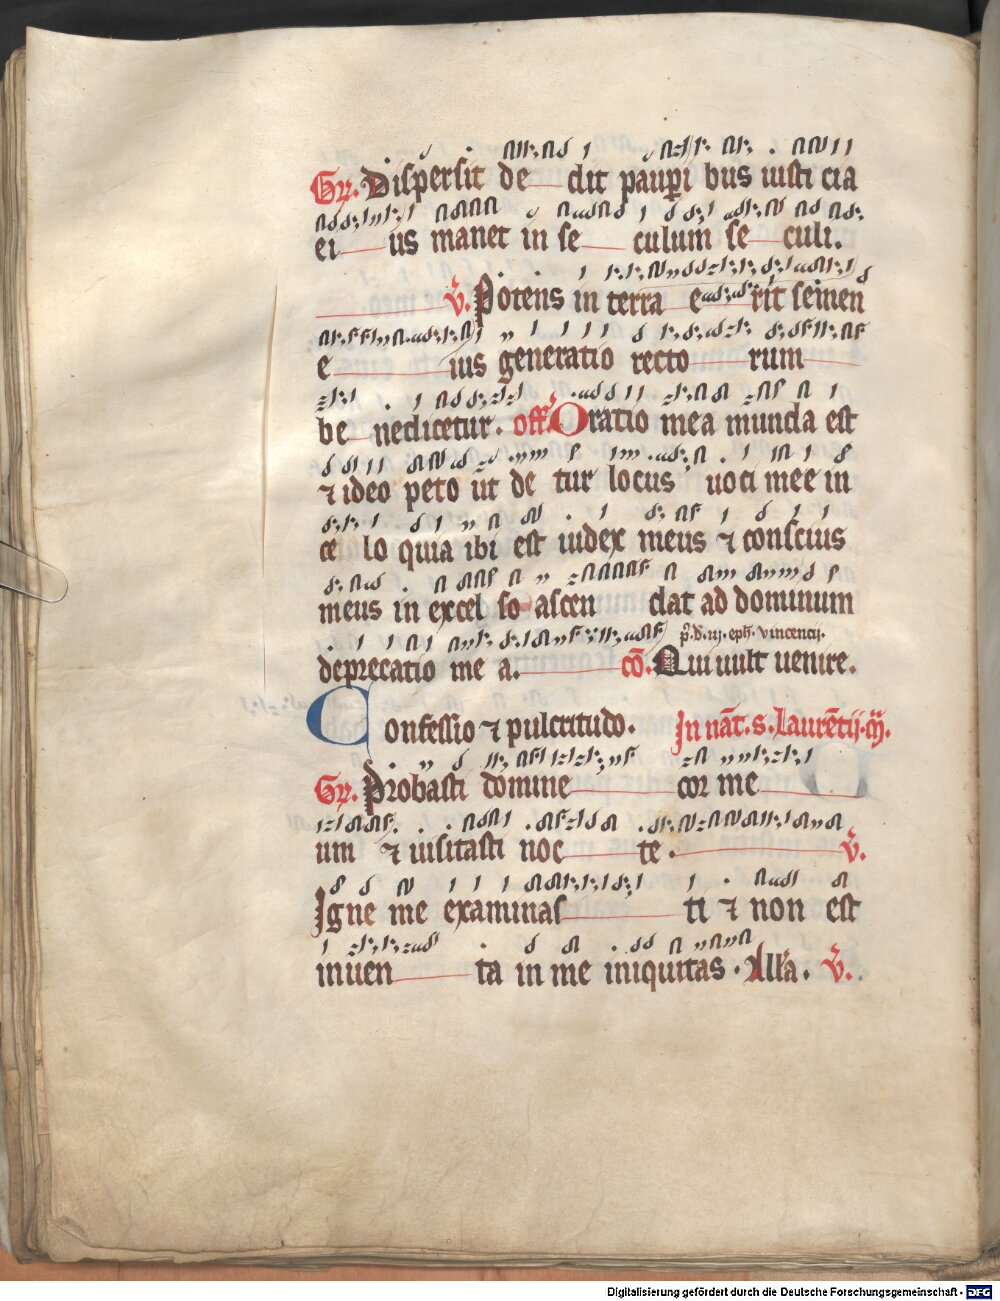 Gr. Dispersit de dit paupi bus iusti cia
ei ius manet in se culum se culi.
V. Potens in terra e rit semen
e ius generatio recto rum
be nedicetur. off. Oratio mea munda est
⁊ ideo peto ut de tur locus uoci mee in
ce lo quia ibi est iudex meus ⁊ conscius
meus in excel so ascen dat ad dominum
p. d. iij. eph. vincencij.
deprecatio me a. cō. Qui uult uenire.
Confessio ⁊ pulcritudo. In nāt. s. Laurētij. m̄.
Gr. Probasti domine cor me
um ⁊ uisitasti noc te. V.
Igne me examinas ti ⁊ non est
inuen ta in me iniquitas. Alla. V.
Digitalisierung gefördert durch die Deutsche Forschungsgemeinschaft - DFG